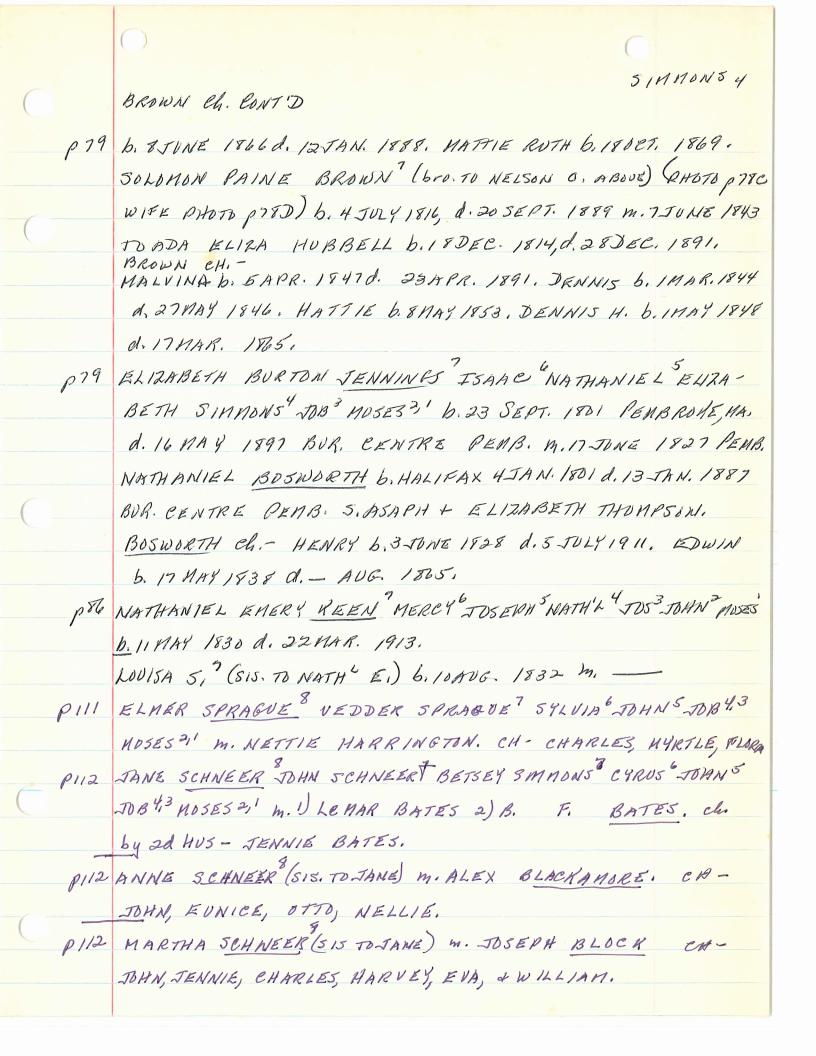 SIMMONS 4
BROWN Ch. CONT'D
p79 b. 8 JUNE 1866 d. 12 JAN. 1888. MATTIE RUTH b. 18 OCT. 1869.
SOLOMON PAINE BROWN⁷ (bro. TO NELSON O. ABOVE) (PHOTO p78C
WIFE PHOTO p78D) b. 4 JULY 1816, d. 20 SEPT. 1889 m. 7 JUNE 1843
TO ADA ELIZA HUBBELL b. 18 DEC. 1814, d. 28 DEC. 1891.
BROWN CH.-
MALVINA b. 5 APR. 1847 d. 23 APR. 1891. DENNIS b. 1 MAR. 1844
d. 27 MAY 1846. HATTIE b. 8 MAY 1853. DENNIS H. b. 1 MAY 1848
d. 17 MAR. 1865.
p79 ELIZABETH BURTON JENNINGS⁷ ISAAC⁶ NATHANIEL⁵ ELIZA-
BETH SIMMONS⁴ JOB³ MOSES²,¹ b. 23 SEPT. 1801 PEMBROKE, MA.
d. 16 MAY 1897 BUR. CENTRE PEMB. m. 17 JUNE 1827 PEMB.
NATHANIEL BOSWORTH b. HALIFAX 4 JAN. 1801 d. 13 JAN. 1887
BUR. CENTRE PEMB. S. ASAPH + ELIZABETH THOMPSON.
BOSWORTH Ch.- HENRY b. 3 JUNE 1828 d. 5 JULY 1911. EDWIN
b. 17 MAY 1838 d. — AUG. 1865.
p86 NATHANIEL EMERY KEEN⁷ MERCY⁶ JOSEPH⁵ NATH'L⁴ JOS³ JOHN² MOSES¹
b. 11 MAY 1830 d. 22 MAR. 1913.
LOUISA S.⁷ (SIS. TO NATHL E.) b. 10 AUG. 1832 m. ——
p111 ELMER SPRAGUE⁸ VEDDER SPRAGUE⁷ SYLVIA⁶ JOHN⁵ JOB⁴,³
MOSES²,¹ m. NETTIE HARRINGTON. CH- CHARLES, MYRTLE, FLORA
p112 JANE SCHNEER⁸ JOHN SCHNEER⁷ BETSEY SIMMONS CYRUS⁶ JOHN⁵
JOB⁴,³ MOSES²,¹ m. 1) LeMAR BATES 2) B. F. BATES. ch.
by 2d HUS- JENNIE BATES.
p112 ANNE SCHNEER⁸ (SIS. TO JANE) m. ALEX BLACKAMORE. CH-
JOHN, EUNICE, OTTO, NELLIE.
p112 MARTHA SCHNEER⁸ (SIS TO JANE) m. JOSEPH BLOCK CH-
JOHN, JENNIE, CHARLES, HARVEY, EVA, + WILLIAM.